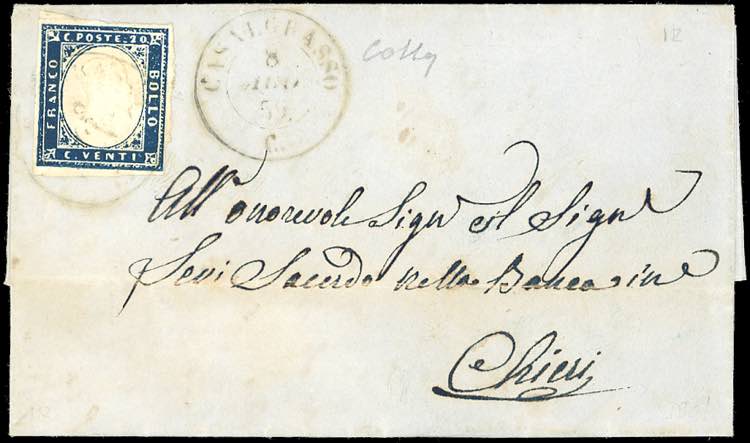 C. POSTE. 20
FRANCO
BOLLO
C. VENTI
CASALGRASSO
8
59
C.
12
All' onorevole Sign il Sign
Sevi Sacerdo nella Banca in
Chieri
12